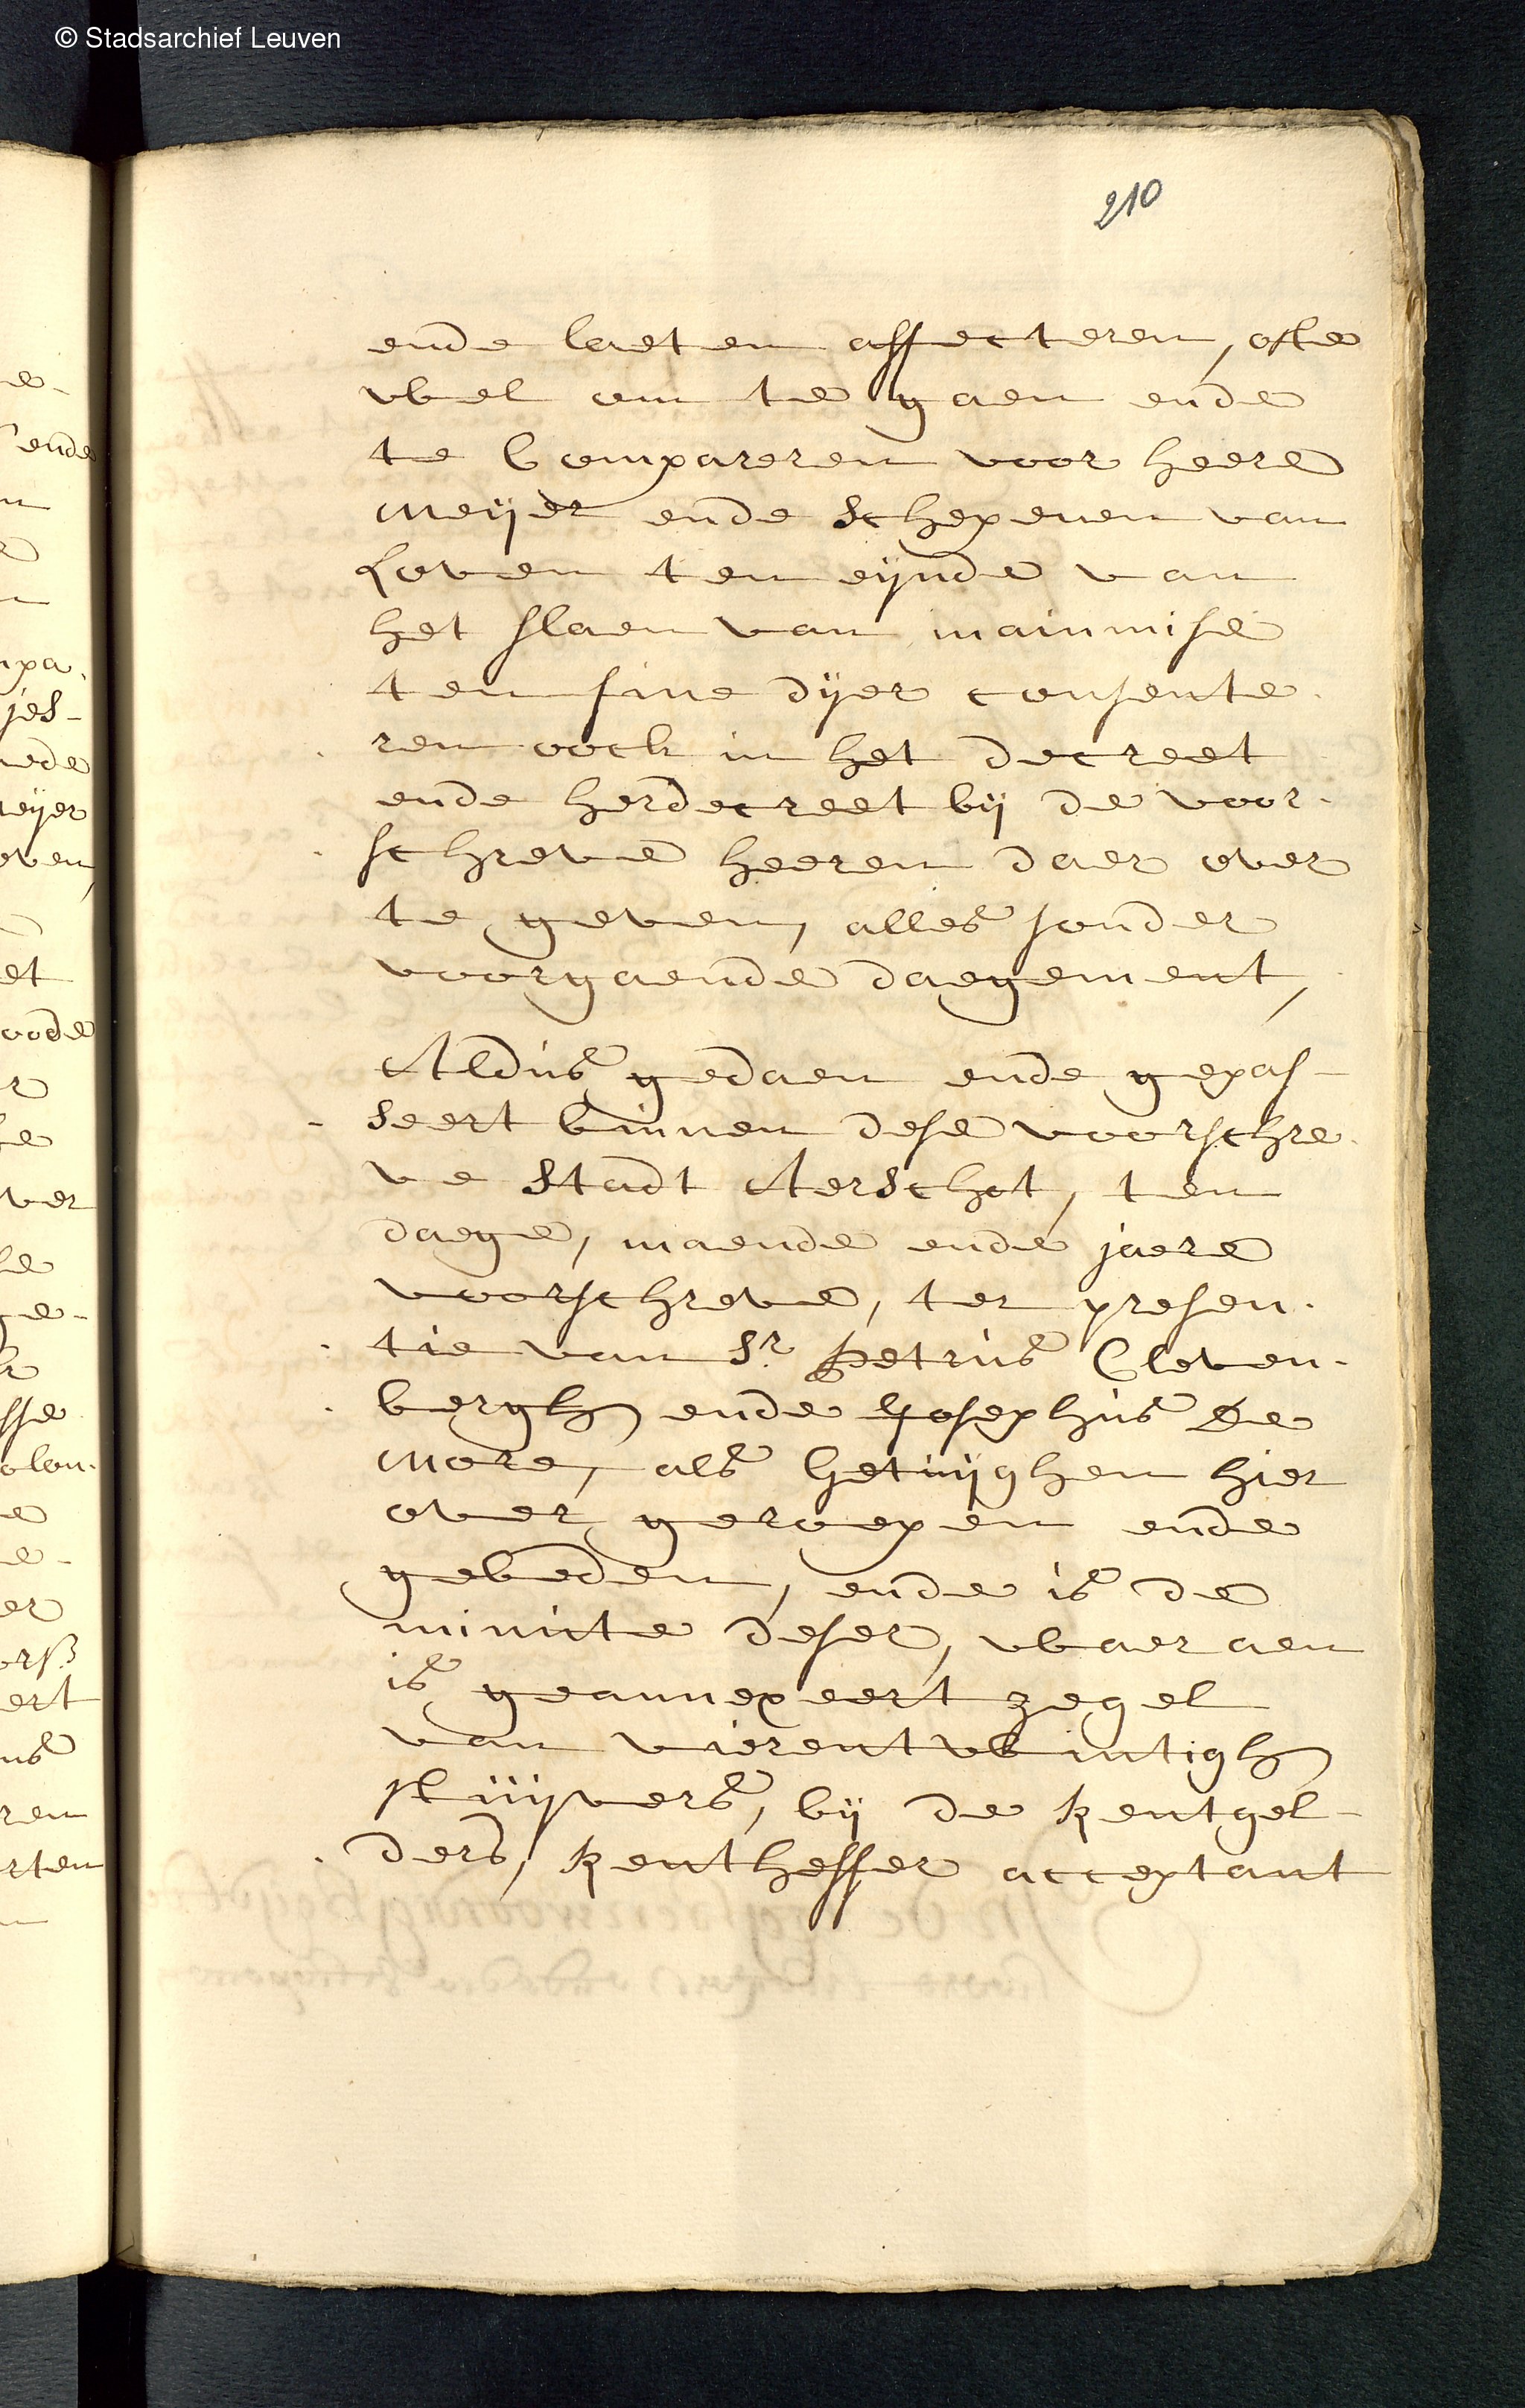 © Stadsarchief Leuven
210
ende laeten affecteren, ofte
wel om te gaen ende
te Compareren voor heere
meijer ende Schepenen van
Loven ten eijnde van
het slaen van mainmise
ten fine dijer consente.
ren oock in het decreet
ende herdecreet bij de voor.
schreve heeren daer over
te geven, alles sonder
voorgaende daegement,
Aldus gedaen ende gepas-
- seert binnen dese voorschre.
ve Stadt Aerschot, ten
daege, maende ende jaere
voorschreve, ter presen.
tie van Sr. Petrus Cleven.
bergh ende Josephus De
more, als Getuijghen hier
over geroepen ende
gebeden, ende is de
minute deser, waer aen
is geannexeert zegel
van vierentwintigh
stuijvers, bij de Rentgel-
ders, Rentheffer acceptant